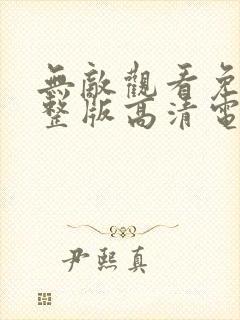 無敵觀看免
整版高清電
尹熙真